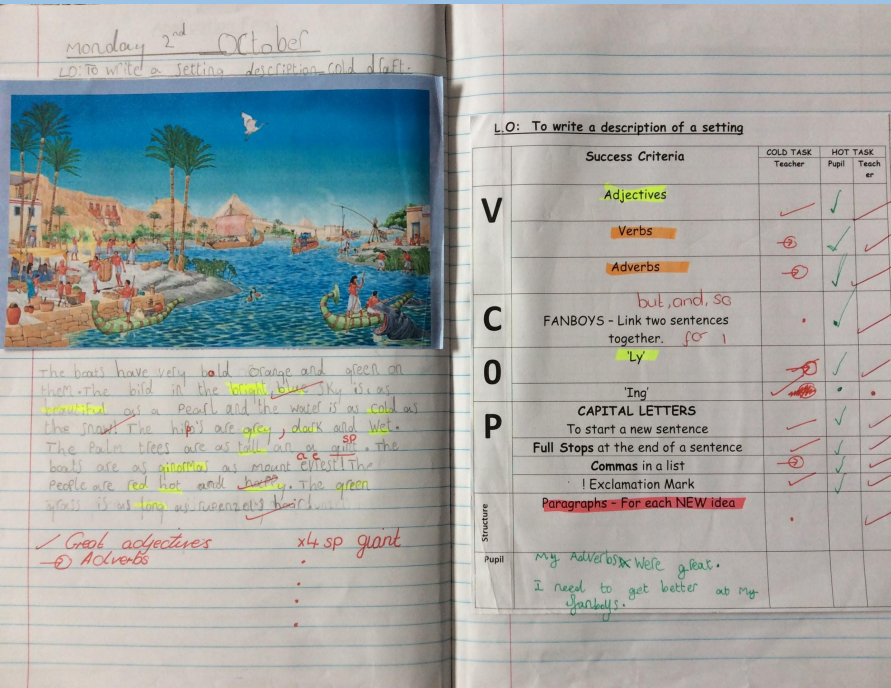 Monday 2nd October
LO: To write a setting description cold draft.
The boats have very bold orange and green on
them. The bird in the bright, blue sky is as
beautiful as a pearl and the water is as cold as
the snow! The hippo's are grey, dark and wet.
The Palm trees are as tall an a sp
The
boats are as ginormas as mount evrest! The
People are red hot and The green
grass is as long as rupenzel's hair!
✓ Great adjectives
Adverbs
x4 sp giant
L.O: To write a description of a setting
Success Criteria
COLD TASK
Teacher
HOT TASK
Pupil
Teach
er
V
Adjectives
Verbs
Adverbs
C
but, and, so
FANBOYS – Link two sentences
together. for 1
O
'Ly'
'Ing'
P
CAPITAL LETTERS
To start a new sentence
Full Stops at the end of a sentence
Commas in a list
! Exclamation Mark
Structure
Paragraphs – For each NEW idea
Pupil
My Adverbs Were great.
I need to get better at my
fanboys.